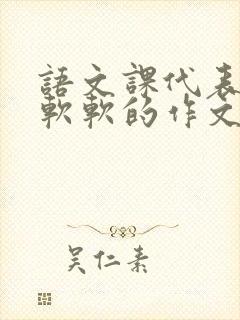 語文課代表
軟軟的作文
吴仁素